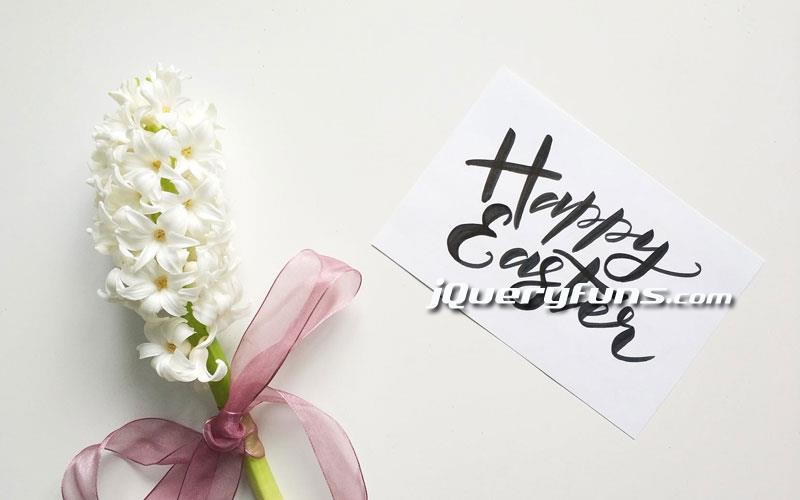 Happy
Easter
jQueryfuns.com